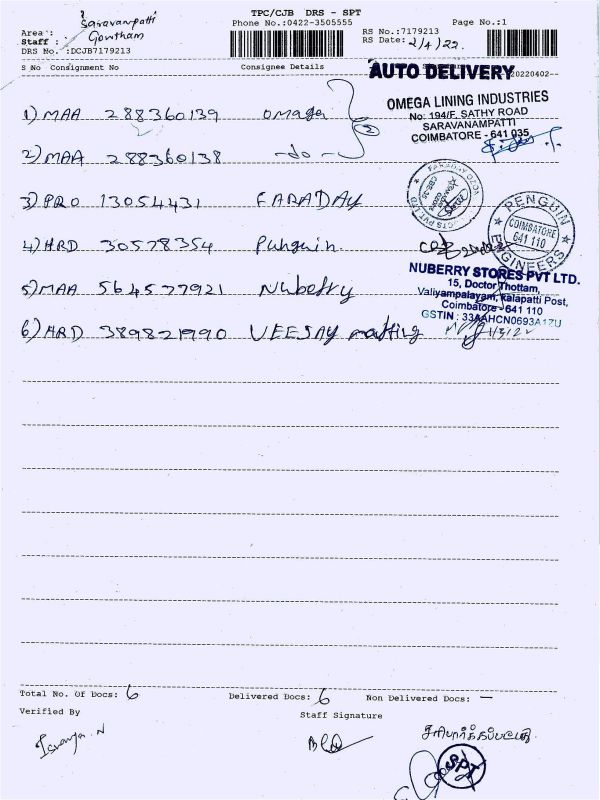 TPC/CJB DRS - SPT
Phone No.:0422-3505555
Page No.:1
Area : Saravanpatti
Staff : Gowtham
DRS No. :DCJB7179213
RS No.:7179213
RS Date: 2/4/22.
S No Consignment No Consignee Details
AUTO DELIVERY 20220402--
1) MAA 288360139 Omega
2) MAA 288360138 -do-
2
OMEGA LINING INDUSTRIES
No: 194/F, SATHY ROAD
SARAVANAMPATTI
COIMBATORE - 641 035
3) PRO 13054431 FARADAY
4) HRD 30578354 Punguin.
PENGUIN ENGINEERS
COIMBATORE
641 110
5) MAA 564577921 Nuberry
NUBERRY STORES PVT LTD.
15, Doctor Thottam,
Valiyampalayam, kalapatti Post,
Coimbatore - 641 110
GSTIN : 33AAHCN0693A1ZU
6) HRD 389821990 VEEJAY matting
Total No. Of Docs: 6 Delivered Docs: 6 Non Delivered Docs: —
Verified By
Staff Signature